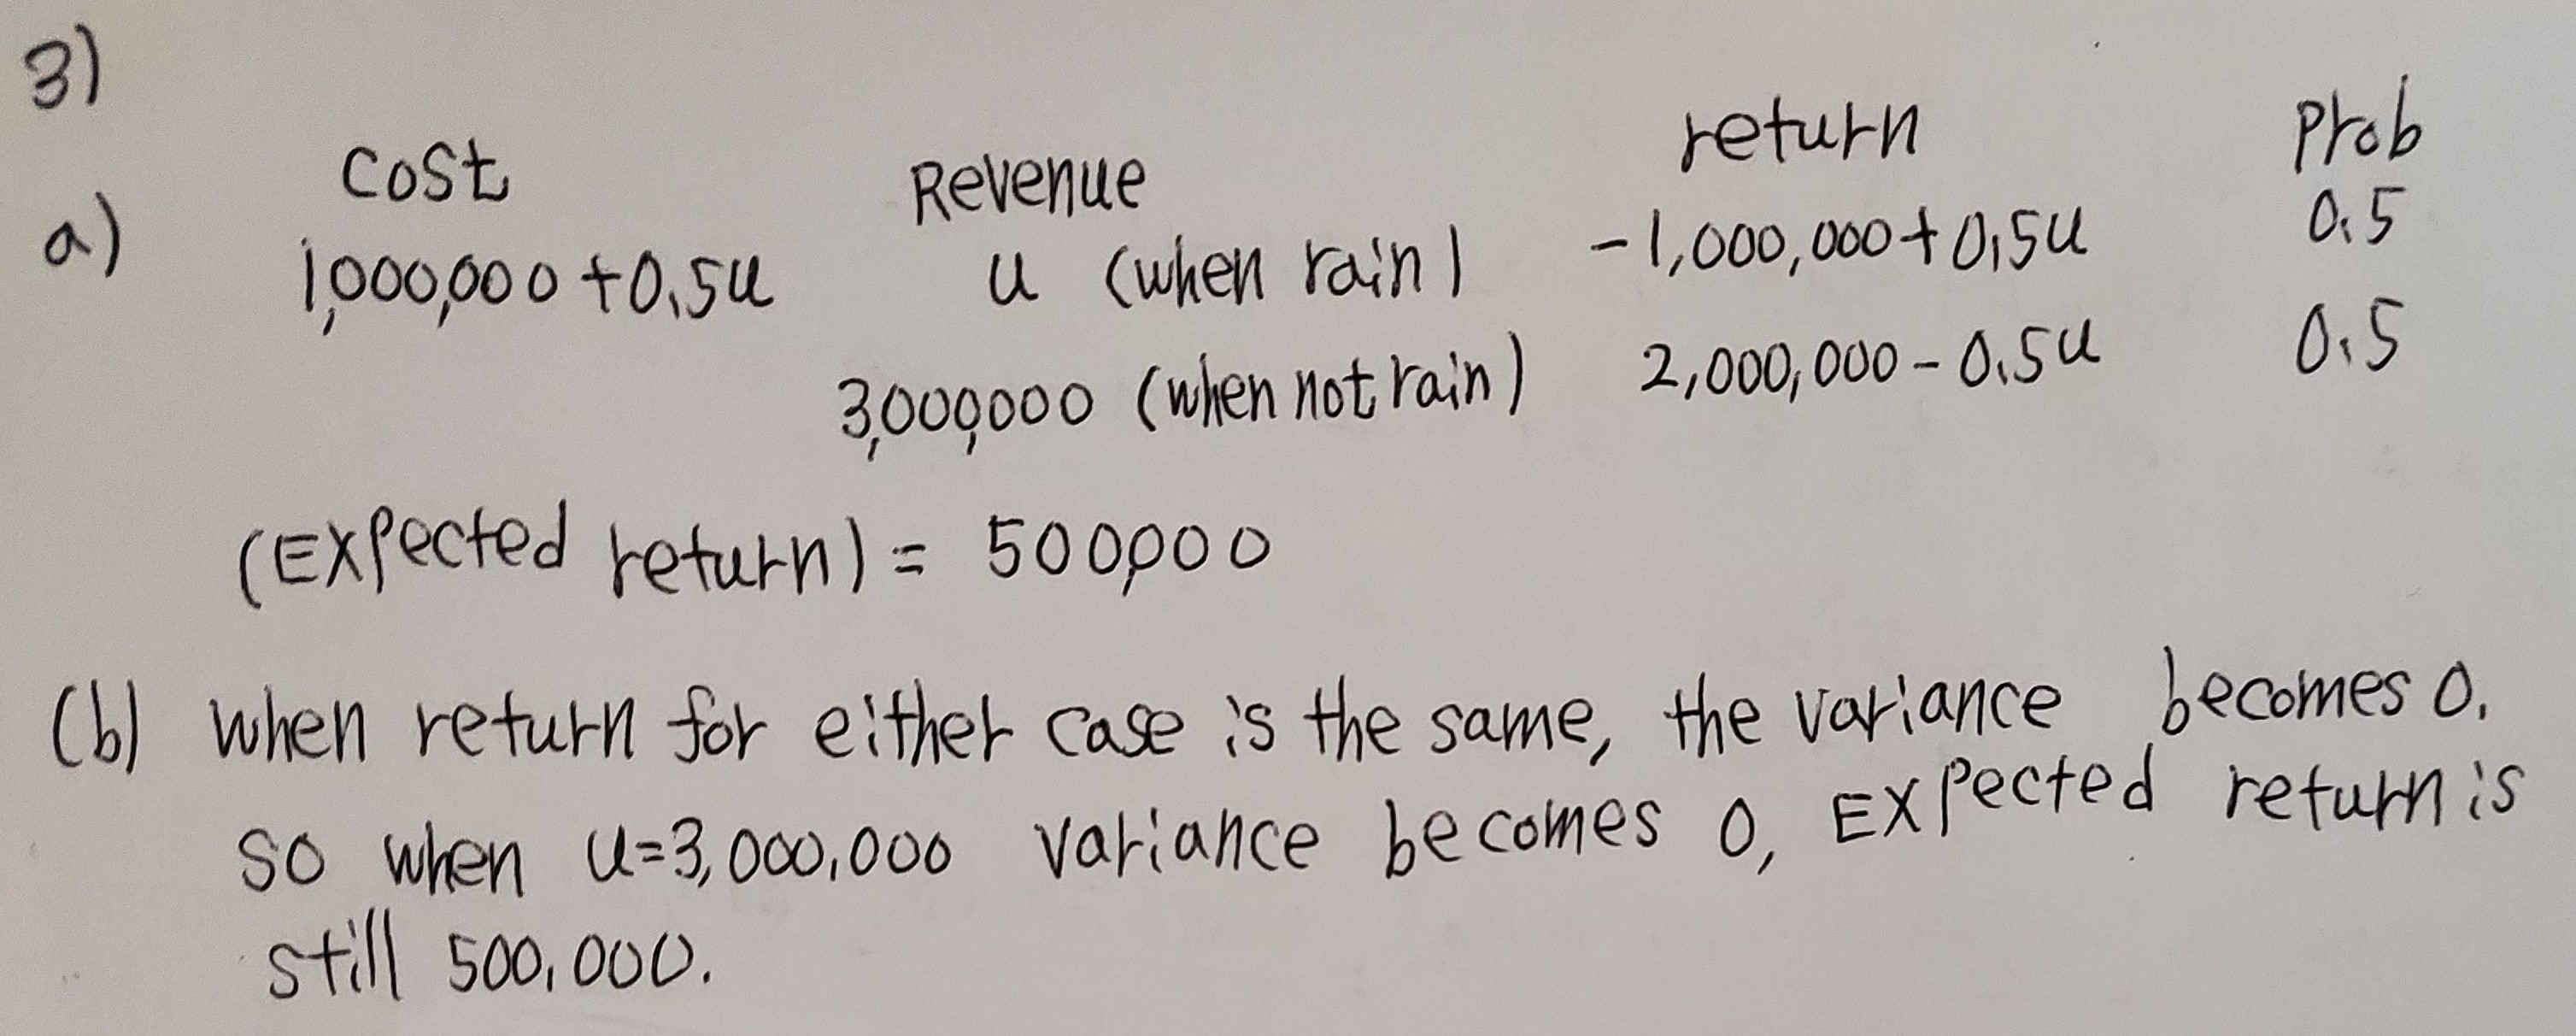 3)
cost Revenue return Prob
a) 1,000,000+0.5u u (when rain) -1,000,000+0.5u 0.5
3,000,000 (when not rain) 2,000,000-0.5u 0.5
(Expected return) = 500,000
(b) when return for either case is the same, the variance becomes 0.
so when u=3,000,000 variance becomes 0, Expected return is
still 500,000.